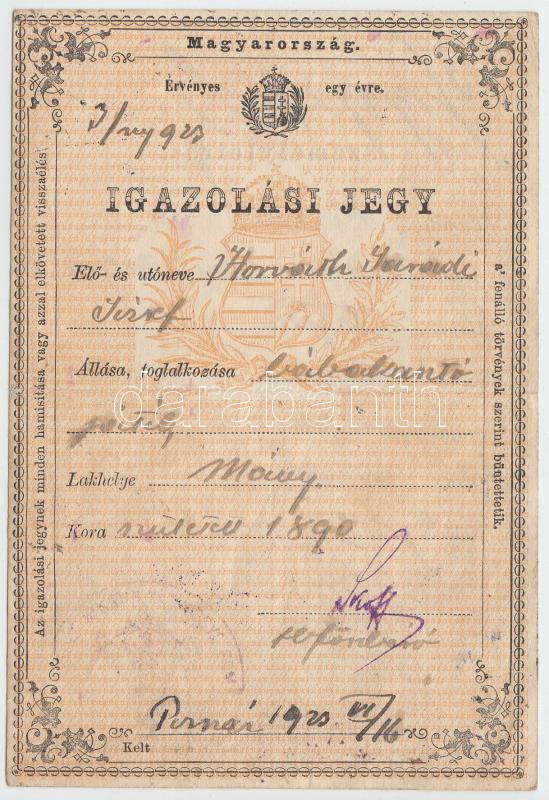 Magyarország.
Érvényes egy évre.
3/1923
IGAZOLÁSI JEGY
Elő- és utóneve Horváth
József
Állása, foglalkozása
Lakhelye Mány
Kora született 1890
Kelt 1923 VI/16
Az igazolási jegynek minden hamisítása vagy azzal elkövetett visszaélés
a' fenálló törvények szerint büntettetik.
darabanth